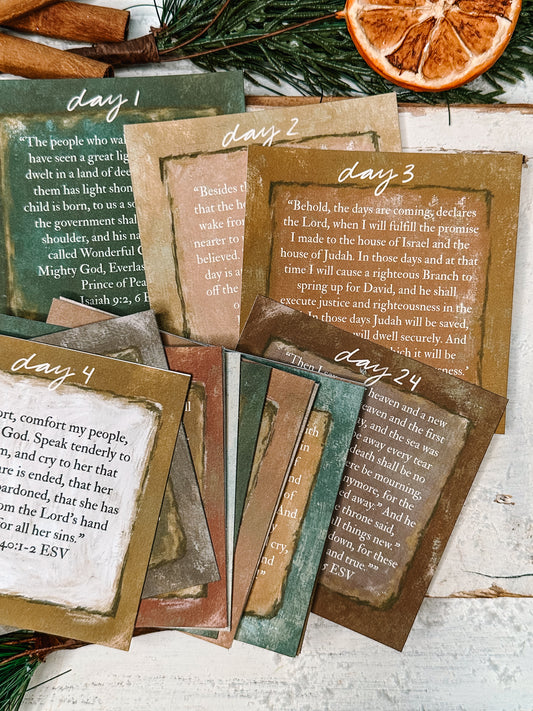 day 1
"The people who wa
have seen a great lig
dwelt in a land of dee
them has light shon
child is born, to us a so
the government shal
shoulder, and his na
called Wonderful C
Mighty God, Everlas
Prince of Pea
Isaiah 9:2, 6 E
day 2
"Besides
that the h
wake from
nearer to u
believed.
day is a
off the
day 3
"Behold, the days are coming, declares
the Lord, when I will fulfill the promise
I made to the house of Israel and the
house of Judah. In those days and at that
time I will cause a righteous Branch to
spring up for David, and he shall
execute justice and righteousness in the
In those days Judah will be saved,
will dwell securely. And
which it will be
day 4
ort, comfort my people,
God. Speak tenderly to
m, and cry to her that
are is ended, that her
pardoned, that she has
om the Lord's hand
for all her sins."
40:1-2 ESV
day 24
"Then I
heaven and a new
eaven and the first
ay, and the sea was
e away every tear
death shall be no
ere be mourning,
nymore, for the
ed away." And he
throne said,
ll things new."
down, for these
and true.""
5 ESV